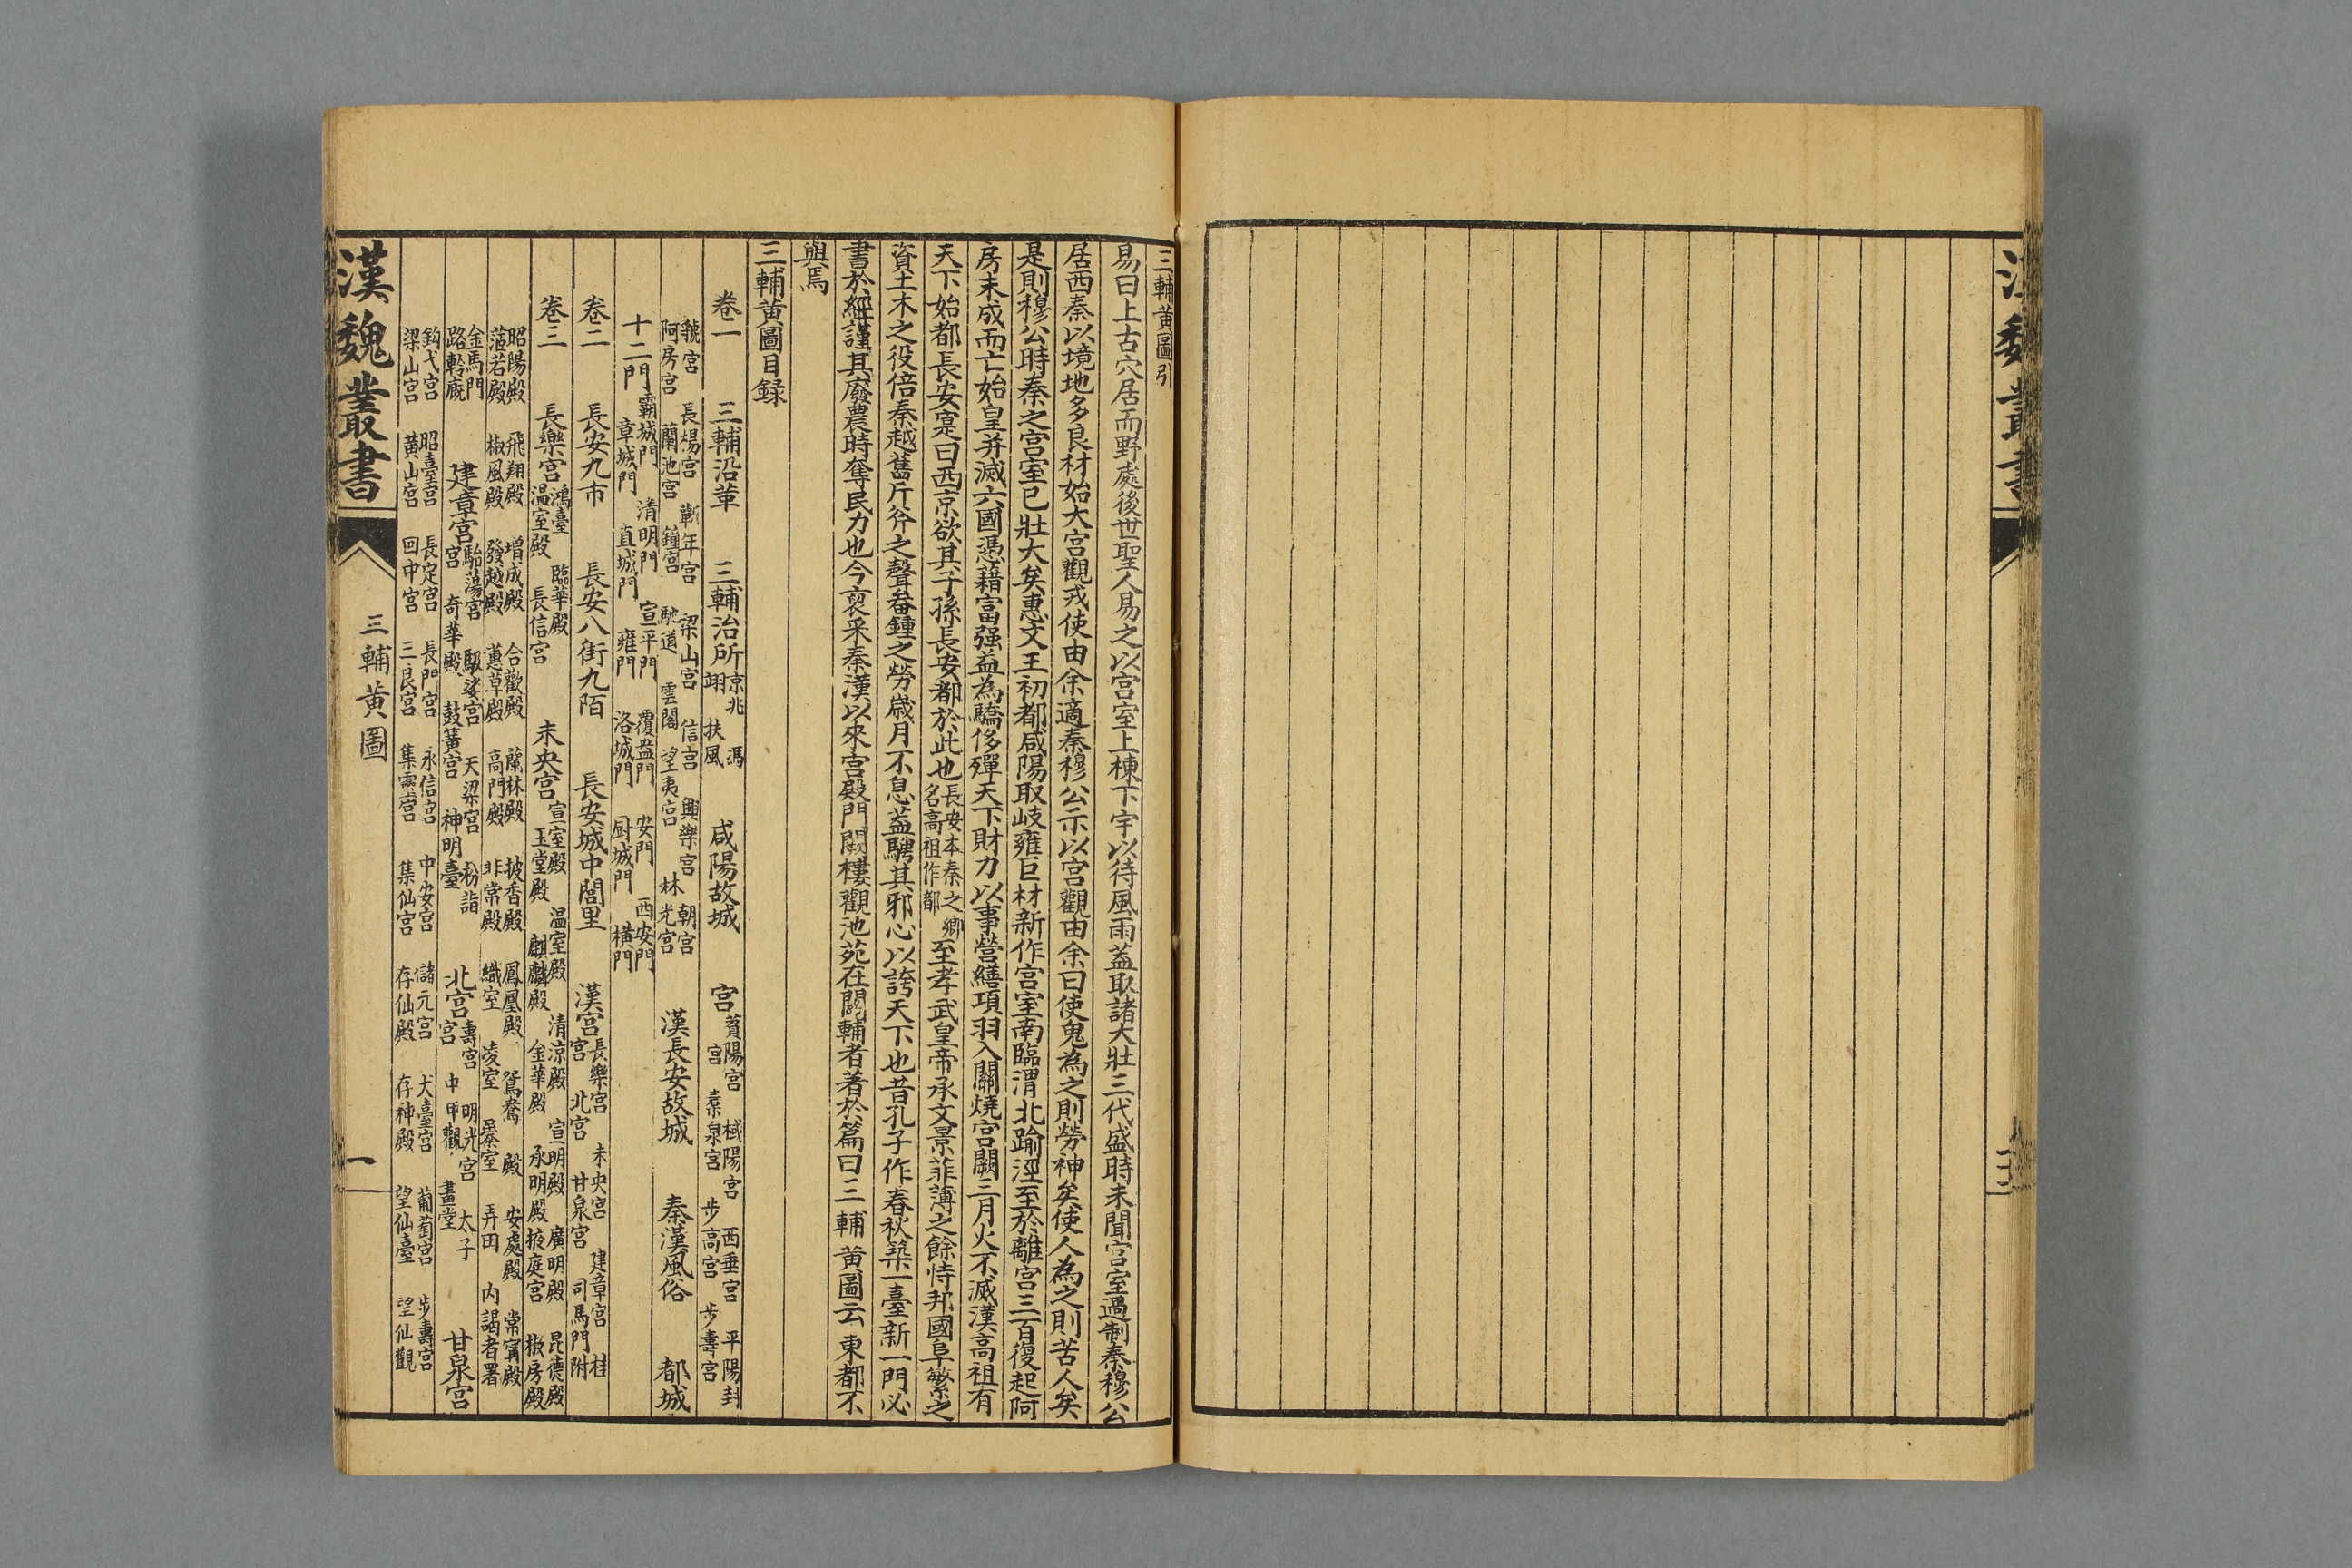 三輔黃圖引
易曰上古穴居而野處後世聖人易之以宮室上棟下宇以待風雨蓋取諸大壯三代盛時未聞宮室過制秦穆公
居西秦以境地多良材始大宮觀戎使由余適秦穆公示以宮觀由余曰使鬼為之則勞神矣使人為之則苦人矣
是則穆公時秦之宮室已壯大矣惠文王初都咸陽取岐雍巨材新作宮室南臨渭北踰涇至於離宮三百復起阿
房未成而亡始皇并滅六國憑藉富强益為驕侈殫天下財力以事營繕項羽入關燒宮闕三月火不滅漢高祖有
天下始都長安寔曰西京欲其子孫長安都於此也長安本秦之鄉名高祖作都至孝武皇帝承文景菲薄之餘恃邦國阜繁之
資土木之役倍秦越舊斤斧之聲畚鍤之勞歲月不息蓋騁其邪心以誇天下也昔孔子作春秋築一臺新一門必
書於經謹其廢農時奪民力也今裒采秦漢以來宮殿門闕樓觀池苑在關輔者著於篇曰三輔黃圖云東都不
與焉
三輔黃圖目録
卷一 三輔沿革 三輔治所 京兆 馮翊 扶風 咸陽故城 宮 萯陽宮 棫陽宮 西垂宮 平陽封宮 橐泉宮 步高宮 步壽宮
虢宮 長楊宮 蘄年宮 梁山宮 信宮 興樂宮 朝宮 阿房宮 蘭池宮 鐘宮 馳道 雲閣 望夷宮 林光宮 漢長安故城 秦漢風俗 都城
十二門 霸城門 清明門 宣平門 覆盎門 安門 西安門 章城門 直城門 雍門 洛城門 厨城門 橫門
卷二 長安九市 長安八街九陌 長安城中閭里 漢宮 長樂宮 未央宮 建章宮 桂宮 北宮 甘泉宮 司馬門附
卷三 長樂宮 鴻臺 臨華殿 温室殿 長信宮 未央宮 宣室殿 温室殿 清涼殿 宣明殿 廣明殿 昆德殿 玉堂殿 麒麟殿 金華殿 承明殿 掖庭宮 椒房殿
昭陽殿 飛翔殿 增成殿 合歡殿 蘭林殿 披香殿 鳳凰殿 鴛鴦殿 安處殿 常寧殿 茞若殿 椒風殿 發越殿 蕙草殿 高門殿 非常殿 織室 凌室 暴室 弄田 内謁者署
金馬門 路軨廄 建章宮 駘蕩宮 馺娑宮 天梁宮 枌詣宮 奇華殿 鼓簧宮 神明臺 北宮 壽宮 明光宮 太子宮 中甲觀 畫堂 甘泉宮
鈎弋宮 昭臺宮 長定宮 長門宮 永信宮 中安宮 儲元宮 犬臺宮 葡萄宮 步壽宮
梁山宮 黃山宮 回中宮 三良宮 集靈宮 集仙宮 存仙殿 存神殿 望仙臺 望仙觀
漢魏叢書 三輔黃圖 一